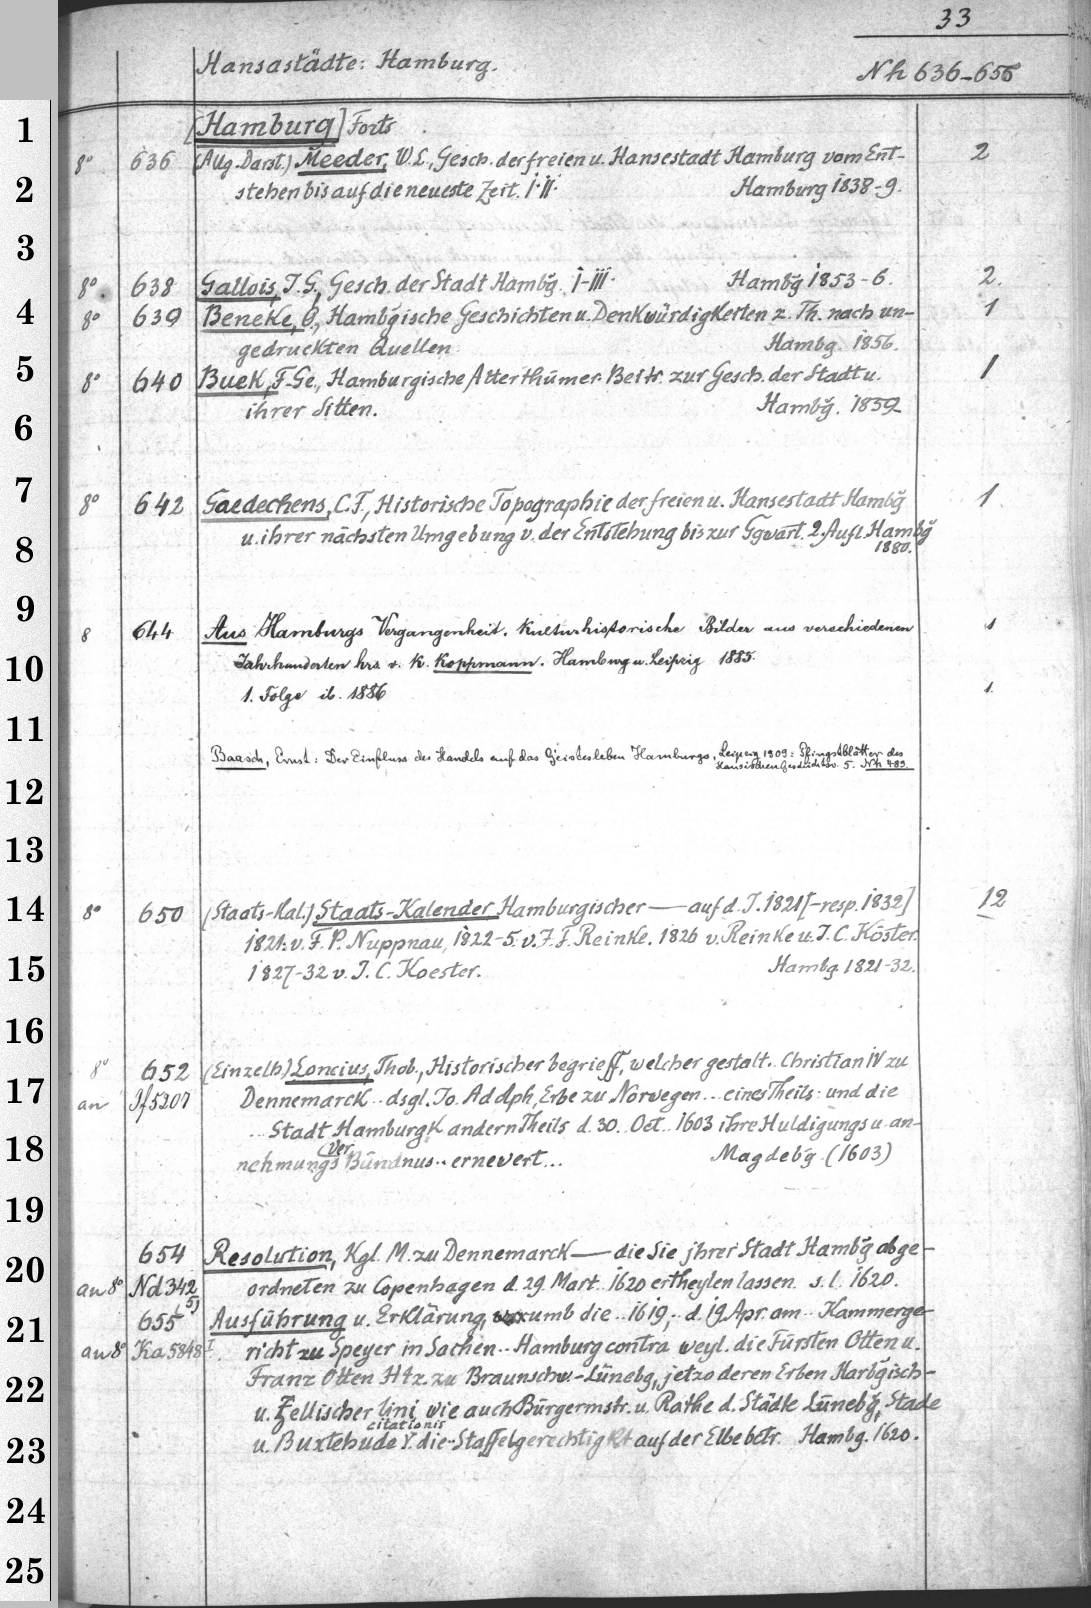 33
Hansastädte: Hamburg.
Nh 636-655
1
[Hamburg] Forts
8° 636 (Allg. Darst.) Meeder, W. L., Gesch. der freien u. Hansestadt Hamburg vom Ent- 2
2
stehen bis auf die neueste Zeit. I. II. Hamburg 1838-9.
3
8° 638 Gallois, J. G., Gesch. der Stadt Hambg. I-III. Hambg 1853-6. 2.
4
8° 639 Beneke, O., Hambgische Geschichten u. Denkwürdigkeiten z. Th. nach un- 1
gedruckten Quellen Hambg. 1856.
5
8° 640 Buek, F. Ge., Hamburgische Alterthümer. Beitr. zur Gesch. der Stadt u. 1
ihrer Sitten. Hambg. 1859
6
7
8° 642 Gaedechens, C. F., Historische Topographie der freien u. Hansestadt Hambg 1
u. ihrer nächsten Umgebung v. der Entstehung bis zur Ggwart. 2. Aufl. Hambg
8
1880.
9
8 644 Aus Hamburgs Vergangenheit. Kulturhistorische Bilder aus verschiedenen 1
10
Jahrhunderten hrs v. K. Koppmann. Hamburg u. Leipzig 1885.
1. Folge ib. 1886 1.
11
Baasch, Ernst: Der Einfluss des Handels auf das Geistesleben Hamburgs. Leipzig 1909: Pfingstblätter des
Hansischen Geschichtsv. 5. Nh 489.
12
13
14
8° 650 (Staats-Kal.) Staats-Kalender Hamburgischer — auf d. J. 1821 [-resp. 1832] 12
1821: v. F. P. Nuppnau, 1822-5. v. J. F. Reinke. 1826 v. Reinke u. J. C. Köster.
15
1827-32 v. J. C. Koester. Hambg 1821-32.
16
8° 652 (Einzelh.) Loncius, Thob., Historischer begrieff, welcher gestalt.. Christian IV zu
17
an Jf 5207 Dennemarck.. dsgl. Jo. Adolph, Erbe zu Norwegen... eines Theils: und die
... Stadt Hamburgk andern Theils d. 30. Oct. 1603 ihre Huldigungs u. an-
18
(Ver
nehmungs Bündnus.. ernevert... Magdebg. (1603)
19
654 Resolution, Kgl. M. zu Dennemarck — die Sie jhrer Stadt Hambg abge-
20
an 8° Nd 342 ordneten zu Copenhagen d. 29. Mart. 1620 ertheylen lassen. s. l. 1620.
5)
655 Ausführung u. Erklärung, warumb die.. 1619,. d. 19 Apr. am.. Kammerge-
21
an 8° Ka 5848 I. richt zu Speyer in Sachen.. Hamburg contra weyl. die Fürsten Otten u.
22
Franz Otten Htz. zu Braunschw.-Lünebg, jetzo deren Erben Harbgisch-
u. Zellischer Lini, wie auch Bürgermstr. u. Rathe d. Städte Lünebg, Stade
citationis
23
u. Buxtehude Y. die.. Staffelgerechtigkt auf der Elbe betr. Hambg. 1620.
24
25